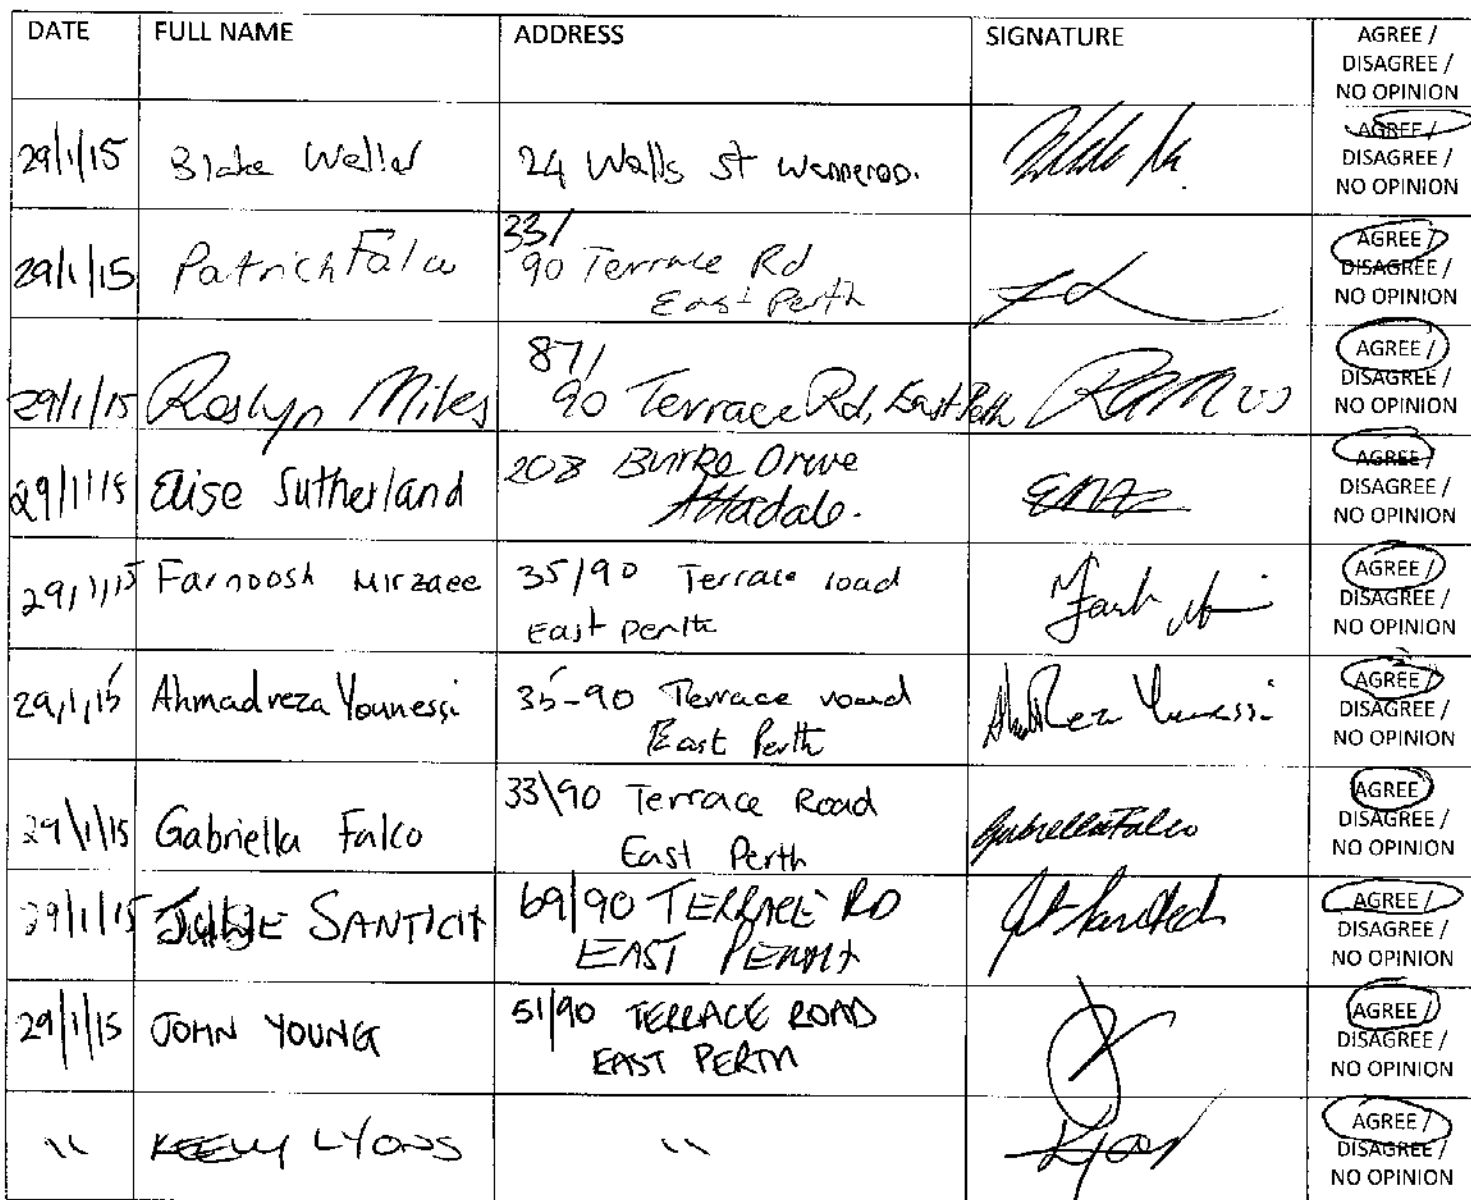 DATE FULL NAME ADDRESS SIGNATURE AGREE /
DISAGREE /
NO OPINION
29/1/15 Blake Weller 24 Walls St Wanneroo. AGREE /
DISAGREE /
NO OPINION
29/1/15 Patrick Falco 33/
90 Terrace Rd
East Perth AGREE /
DISAGREE /
NO OPINION
29/1/15 Roslyn Miles 87/
90 Terrace Rd, East Perth AGREE /
DISAGREE /
NO OPINION
29/1/15 Elise Sutherland 208 Burke Drive
Attadale. AGREE /
DISAGREE /
NO OPINION
29/1/15 Farnoosh Mirzaee 35/90 Terrace road
East perth AGREE /
DISAGREE /
NO OPINION
29/1/15 Ahmadreza Younessi 35-90 Terrace road
East Perth AhmadReza Younessi AGREE /
DISAGREE /
NO OPINION
29\1\15 Gabriella Falco 33\90 Terrace Road
East Perth Gabriella Falco AGREE /
DISAGREE /
NO OPINION
29/1/15 JULIE SANTICH 69/90 TERRACE RD
EAST PERTH AGREE /
DISAGREE /
NO OPINION
29/1/15 JOHN YOUNG 51/90 TERRACE ROAD
EAST PERTH AGREE /
DISAGREE /
NO OPINION
" KEELY LYONS " AGREE /
DISAGREE /
NO OPINION